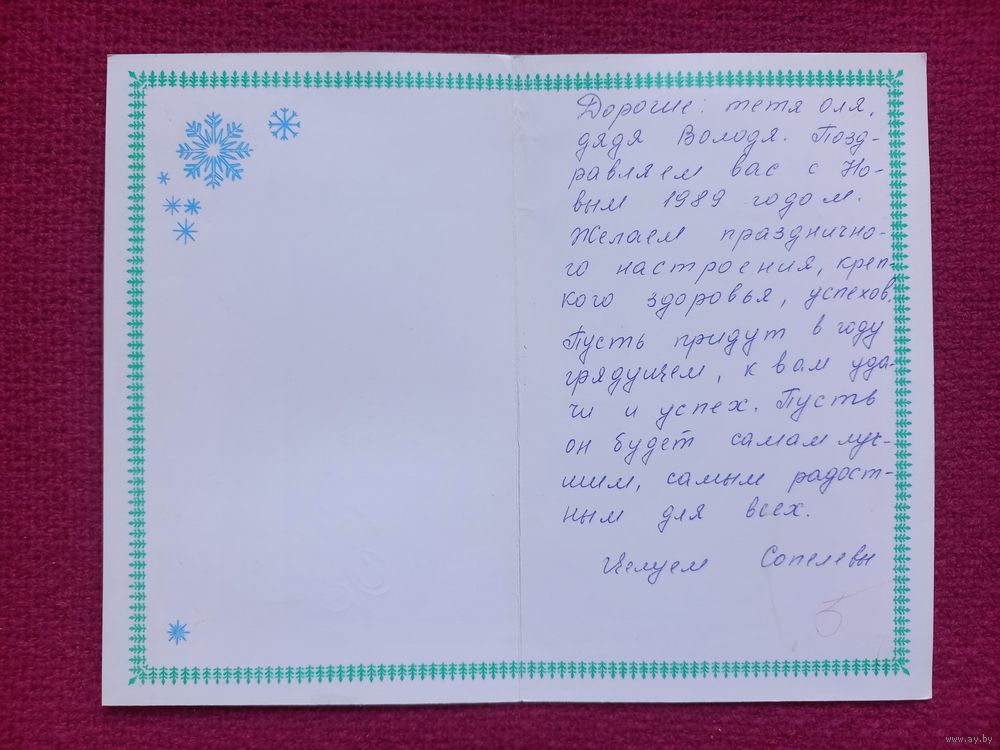 Дорогие: тетя Оля,
дядя Володя. Позд-
равляем вас с Но-
вым 1989 годом.
Желаем праздично-
го настроения, креп-
кого здоровья, успехов.
Пусть придут в году
грядущем, к вам уда-
чи и успех. Пусть
он будет самам луч-
шим, самым радост-
ным для всех.
Целуем Сопелевы
5
www.ay.by